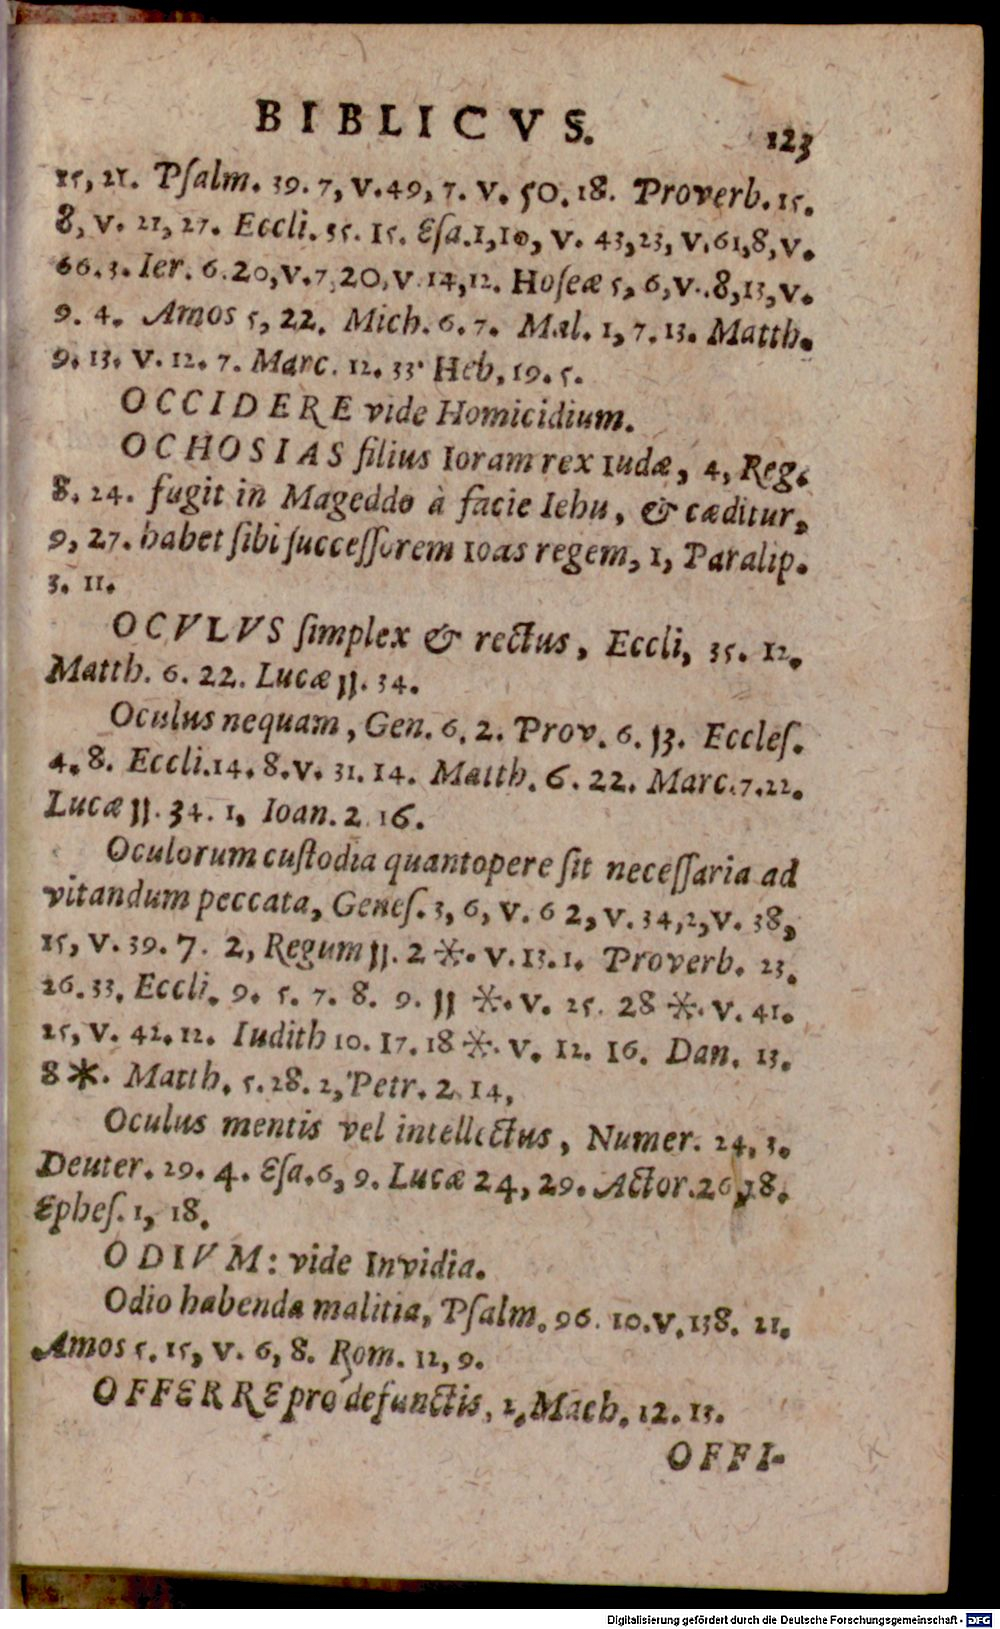 BIBLICVS. 123
15, 21. Pſalm. 39. 7, v. 49, 7. v. 50. 18. Proverb. 15.
8, v. 21, 27. Eccli. 35. 15. Eſa. 1, 10, v. 43, 23, v. 61, 8, v.
66. 3. Ier. 6. 20, v. 7, 20, v 14, 12. Hoſeæ 5, 6, v. 8, 13, v.
9. 4. Amos 5, 22. Mich. 6. 7. Mal. 1, 7. 13. Matth.
9. 13. v. 12. 7. Marc. 12. 33. Heb, 19. 5.
OCCIDERE vide Homicidium.
OCHOSIAS filius Ioram rex Iudæ, 4, Reg.
8. 24. fugit in Mageddo à facie Iehu, & cæditur,
9, 27. habet ſibi ſucceſſorem Ioas regem, 1, Paralip.
3. 11.
OCVLVS ſimplex & rectus, Eccli, 35. 12.
Matth. 6. 22. Lucæ 11. 34.
Oculus nequam, Gen. 6. 2. Prov. 6. 13. Eccleſ.
4. 8. Eccli. 14. 8. v. 31. 14. Matth. 6. 22. Marc. 7. 22.
Lucæ 11. 34. 1, Ioan. 2 16.
Oculorum cuſtodia quantopere ſit neceſſaria ad
vitandum peccata, Geneſ. 3, 6, v. 6 2, v. 34, 2, v. 38,
15, v. 39. 7. 2, Regum 11. 2 *. v. 13. 1. Proverb. 23.
26. 33. Eccli. 9. 5. 7. 8. 9. 11 *. v. 25. 28 *. v. 41.
25, v. 42. 12. Iudith 10. 17. 18 *. v. 12. 16. Dan. 13.
8 *. Matth. 5. 28. 2, Petr. 2 14,
Oculus mentis vel intellectus, Numer. 24, 3.
Deuter. 29. 4. Eſa. 6, 9. Lucæ 24, 29. Actor. 26, 18.
Epheſ. 1, 18.
ODIVM: vide Invidia.
Odio habenda malitia, Pſalm. 96. 10. v. 138. 21.
Amos 5. 15, v. 6, 8. Rom. 12, 9.
OFFERRE pro defunctis, 2, Mach. 12. 13.
OFFI-
Digitalisierung gefördert durch die Deutsche Forschungsgemeinschaft - DFG